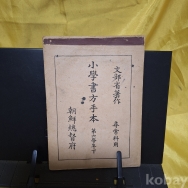 文部省著作
尋常科用
小學書方手本
第六學年下
朝鮮總督府
kobay